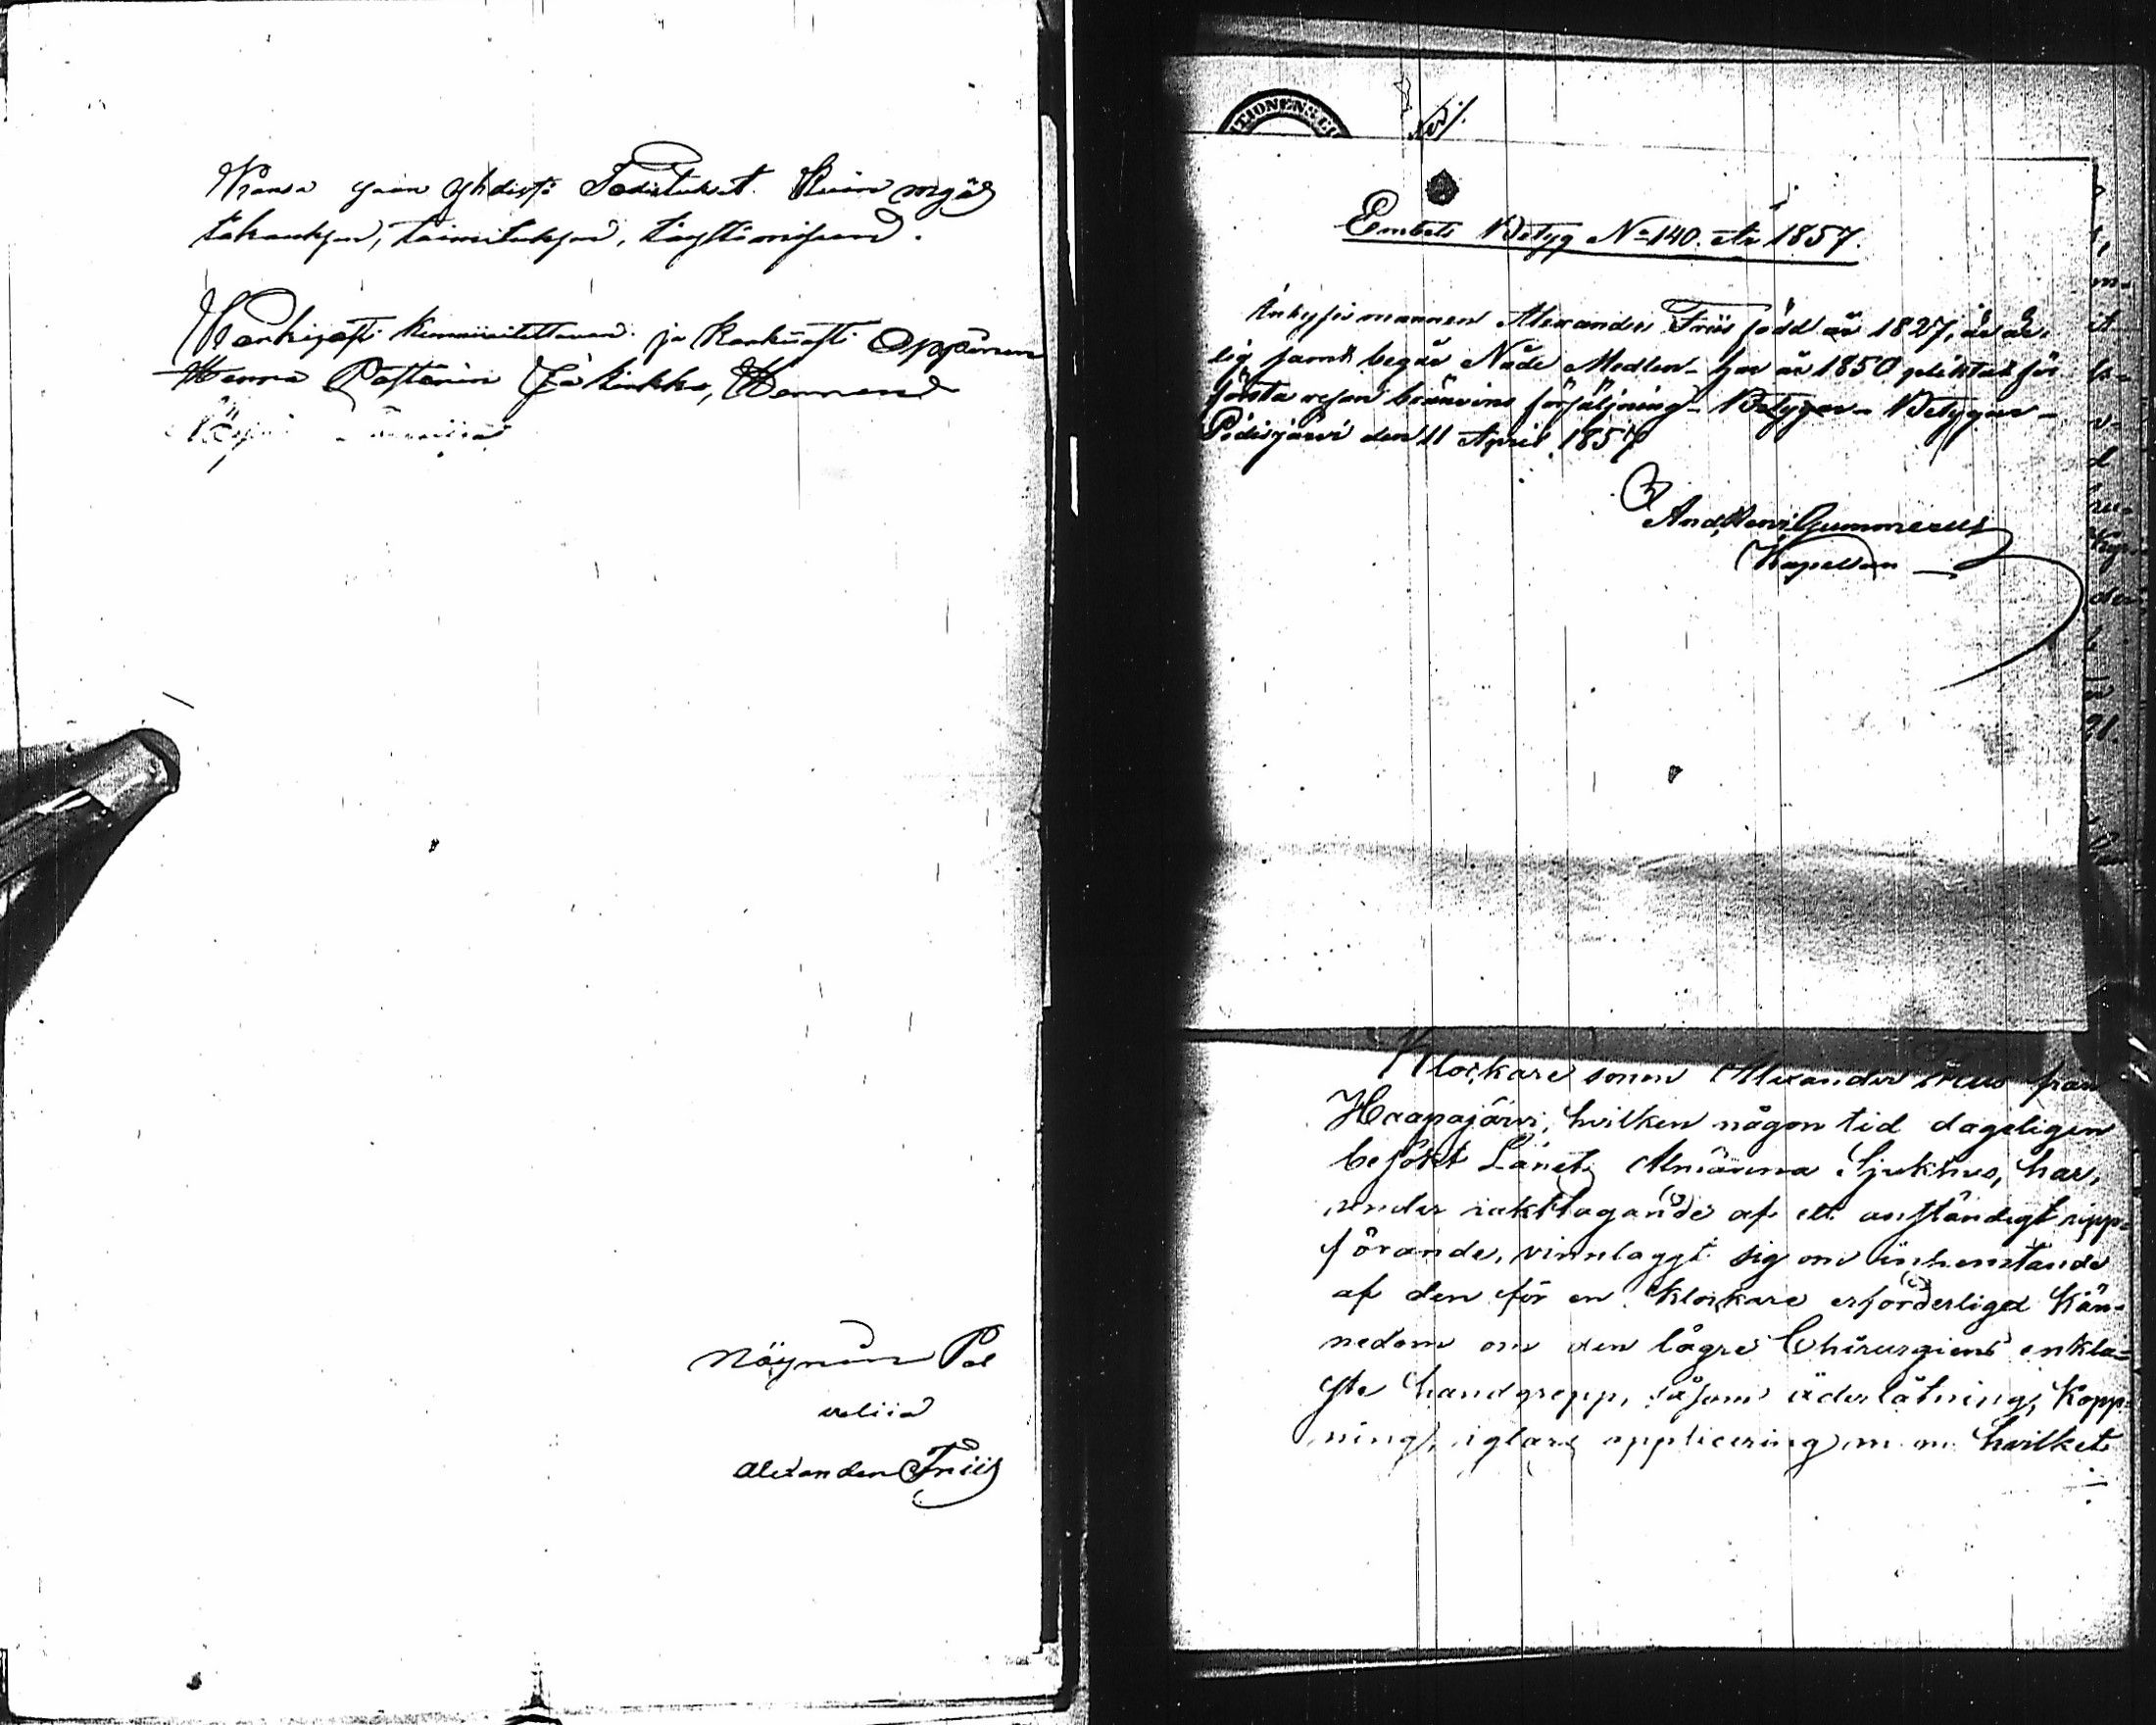 Kansa yhdistä Todistukset. Kuin myös
täyttämisen.
Korkiasti kunnioitettavan ja Korkiasti Oppinen
Herra Pastorin
Nöyrin Pal
velia
Alexander Friis
TIONENS CH
Embets Betyg No 140. År 1857.
Inhysismannen Alexander Friis född år 1827, är är-
lig samt begår Nåde Medlen - har år 1850 pliktat för
första resan bränvins försäljning - Betygar - Betygar -
Pidisjärvi den 11 April 1857
And. Henr. Gummerus
Kapellan
Klockare sonen Alexander Friis från
Haapajärvi, hvilken någon tid dageligen
besökt Länets Almänna Sjukhus, har,
under iakttagande af ett anständigt upp-
förande, vinnlaggt sig om inhemtande
af den för en Klockare erforderliga Kän-
nedom om den lägre Chirurgiens enkla-
ste handgrepp, såsom åderlåtning, Kopp-
ning, iglars applicering m. m. hvilket